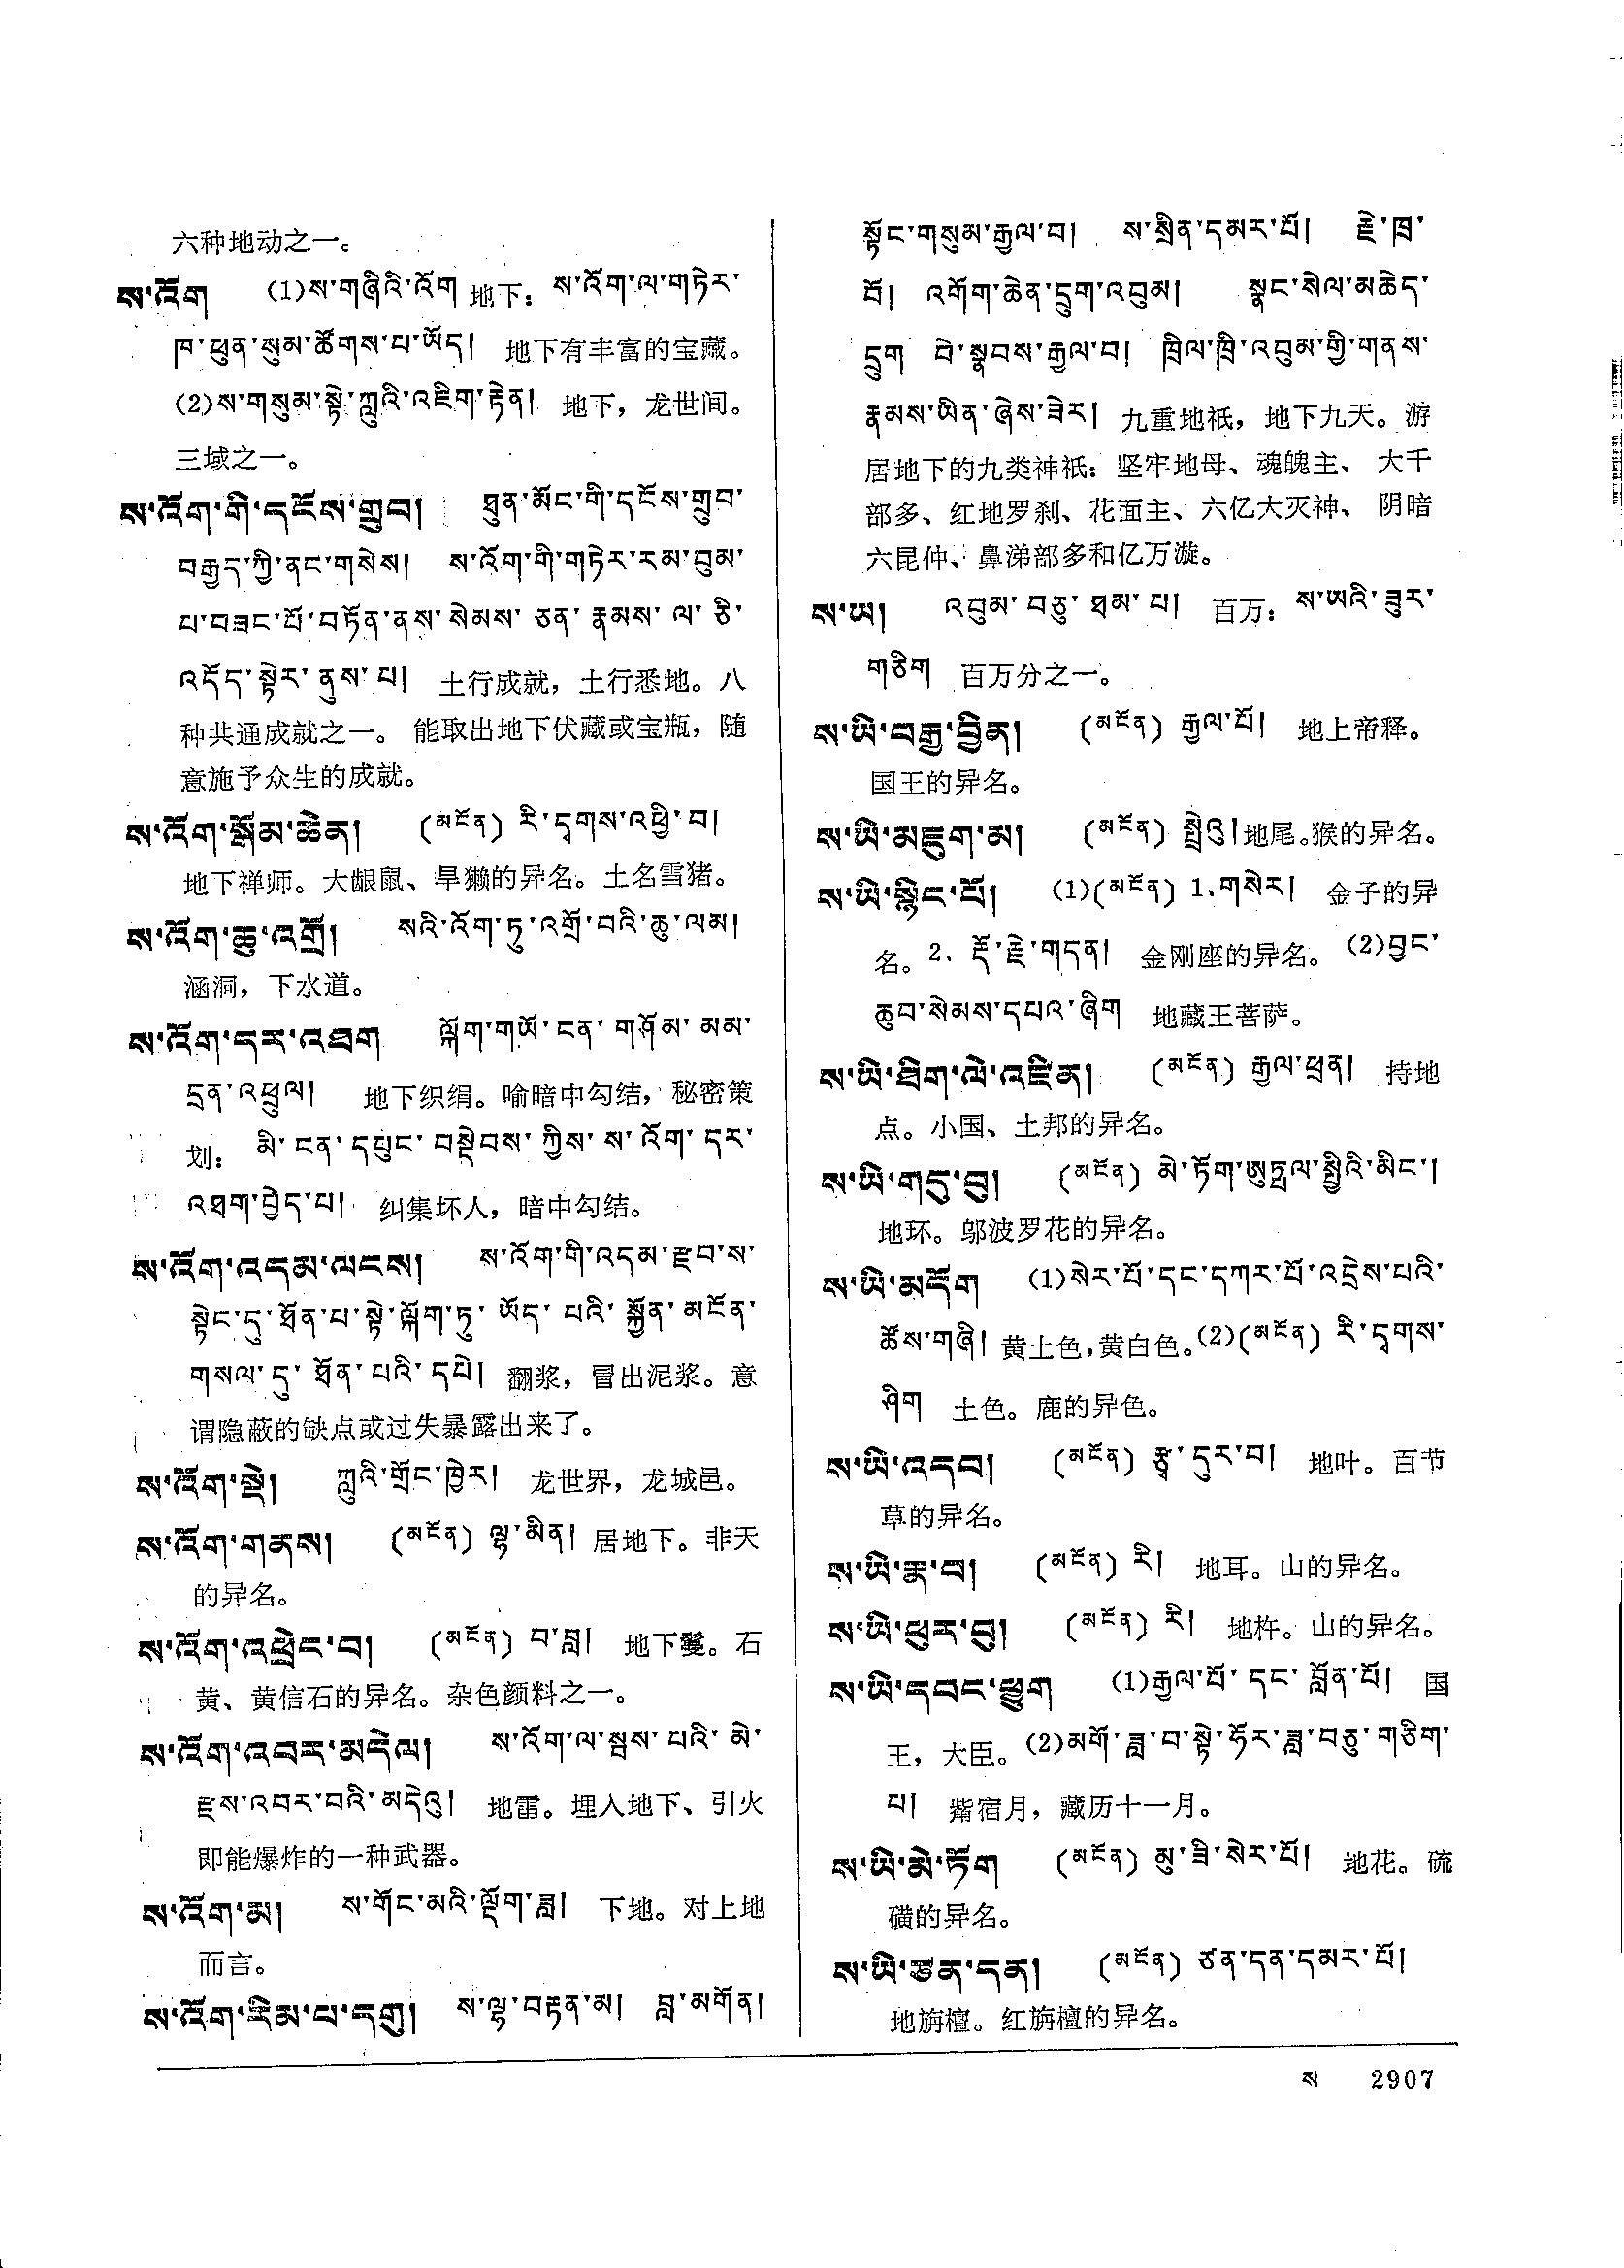 六种地动之一。
ས་འོག (1)ས་གཞིའི་འོག 地下：ས་འོག་ལ་གཏེར་
ཁ་ཕུན་སུམ་ཚོགས་པ་ཡོད། 地下有丰富的宝藏。
(2)ས་གསུམ་སྟེ་ཀླུའི་འཇིག་རྟེན། 地下，龙世间。
三域之一。
ས་འོག་གི་དངོས་གྲུབ། ཐུན་མོང་གི་དངོས་གྲུབ་
བརྒྱད་ཀྱི་ནང་གསེས། ས་འོག་གི་གཏེར་རམ་བུམ་
པ་བཟང་པོ་བཏོན་ནས་སེམས་ཅན་རྣམས་ལ་ཅི་
འདོད་སྟེར་ནུས་པ། 土行成就，土行悉地。八
种共通成就之一。能取出地下伏藏或宝瓶，随
意施予众生的成就。
ས་འོག་སྒོམ་ཆེན། (མངོན) རི་དྭགས་འཕྱི་བ།
地下禅师。大龈鼠、旱獭的异名。土名雪猪。
ས་འོག་ཆུ་འགྲོ། སའི་འོག་ཏུ་འགྲོ་བའི་ཆུ་ལམ།
涵洞，下水道。
ས་འོག་དར་འཐག ལྐོག་གཡོ་ངན་གཤོམ་མམ་
དྲན་འཕྲུལ། 地下织绢。喻暗中勾结，秘密策
划：མི་ངན་དཔུང་བསྡེབས་ཀྱིས་ས་འོག་དར་
འཐག་བྱེད་པ། 纠集坏人，暗中勾结。
ས་འོག་འདམ་ལངས། ས་འོག་གི་འདམ་རྫབ་ས་
སྟེང་དུ་ཐོན་པ་སྟེ་ལྐོག་ཏུ་ཡོད་པའི་སྐྱོན་མངོན་
གསལ་དུ་ཐོན་པའི་དཔེ། 翻浆，冒出泥浆。意
谓隐蔽的缺点或过失暴露出来了。
ས་འོག་སྡེ། ཀླུའི་གྲོང་ཁྱེར། 龙世界，龙城邑。
ས་འོག་གནས། (མངོན) ལྷ་མིན། 居地下。非天
的异名。
ས་འོག་འཕྲེང་བ། (མངོན) བ་བླ། 地下鬘。石
黄、黄信石的异名。杂色颜料之一。
ས་འོག་འབར་མདེལ། ས་འོག་ལ་སྦས་པའི་མེ་
རྫས་འབར་བའི་མདེའུ། 地雷。埋入地下、引火
即能爆炸的一种武器。
ས་འོག་མ། ས་གོང་མའི་ལྡོག་ཟླ། 下地。对上地
而言。
ས་འོག་རིམ་པ་དགུ། ས་ལྷ་བརྟན་མ། བླ་མགོན།
སྟོང་གསུམ་རྒྱལ་བ། ས་སྲིན་དམར་པོ། རྗེ་ཁྲ་
བོ། འགོག་ཆེན་དྲུག་འབུམ། སྣང་སེལ་མཆེད་
དྲུག བེ་སྣབས་རྒྱལ་བ། ཁྲིལ་ཁྲི་འབུམ་གྱི་གནས་
རྣམས་ཡིན་ཞེས་ཟེར། 九重地祇，地下九天。游
居地下的九类神祇：坚牢地母、魂魄主、大千
部多、红地罗刹、花面主、六亿大灭神、阴暗
六昆仲、鼻涕部多和亿万漩。
ས་ཡ། འབུམ་བཅུ་ཐམ་པ། 百万：ས་ཡའི་ཟུར་
གཅིག 百万分之一。
ས་ཡི་བརྒྱ་བྱིན། (མངོན) རྒྱལ་པོ། 地上帝释。
国王的异名。
ས་ཡི་མཇུག་མ། (མངོན) སྤྲེའུ། 地尾。猴的异名。
ས་ཡི་སྙིང་པོ། (1)(མངོན) 1、གསེར། 金子的异
名。2、རྡོ་རྗེ་གདན། 金刚座的异名。(2)བྱང་
ཆུབ་སེམས་དཔའ་ཞིག 地藏王菩萨。
ས་ཡི་ཐིག་ལེ་འཛིན། (མངོན) རྒྱལ་ཕྲན། 持地
点。小国、土邦的异名。
ས་ཡི་གདུ་བུ། (མངོན) མེ་ཏོག་ཨུཏྤལ་སྤྱིའི་མིང་།
地环。邬波罗花的异名。
ས་ཡི་མདོག (1)སེར་པོ་དང་དཀར་པོ་འདྲེས་པའི་
ཚོས་གཞི། 黄土色，黄白色。(2)(མངོན) རི་དྭགས་
ཤིག 土色。鹿的异色。
ས་ཡི་འདབ། (མངོན) རྩྭ་དུར་བ། 地叶。百节
草的异名。
ས་ཡི་རྣ་བ། (མངོན) རི། 地耳。山的异名。
ས་ཡི་ཕུར་བུ། (མངོན) རི། 地杵。山的异名。
ས་ཡི་དབང་ཕྱུག (1)རྒྱལ་པོ་དང་བློན་པོ། 国
王，大臣。(2)མགོ་ཟླ་བ་སྟེ་ཧོར་ཟླ་བཅུ་གཅིག་
པ། 觜宿月，藏历十一月。
ས་ཡི་མེ་ཏོག (མངོན) མུ་ཟི་སེར་པོ། 地花。硫
磺的异名。
ས་ཡི་ཙན་དན། (མངོན) ཙན་དན་དམར་པོ།
地旃檀。红旃檀的异名。
ས 2907